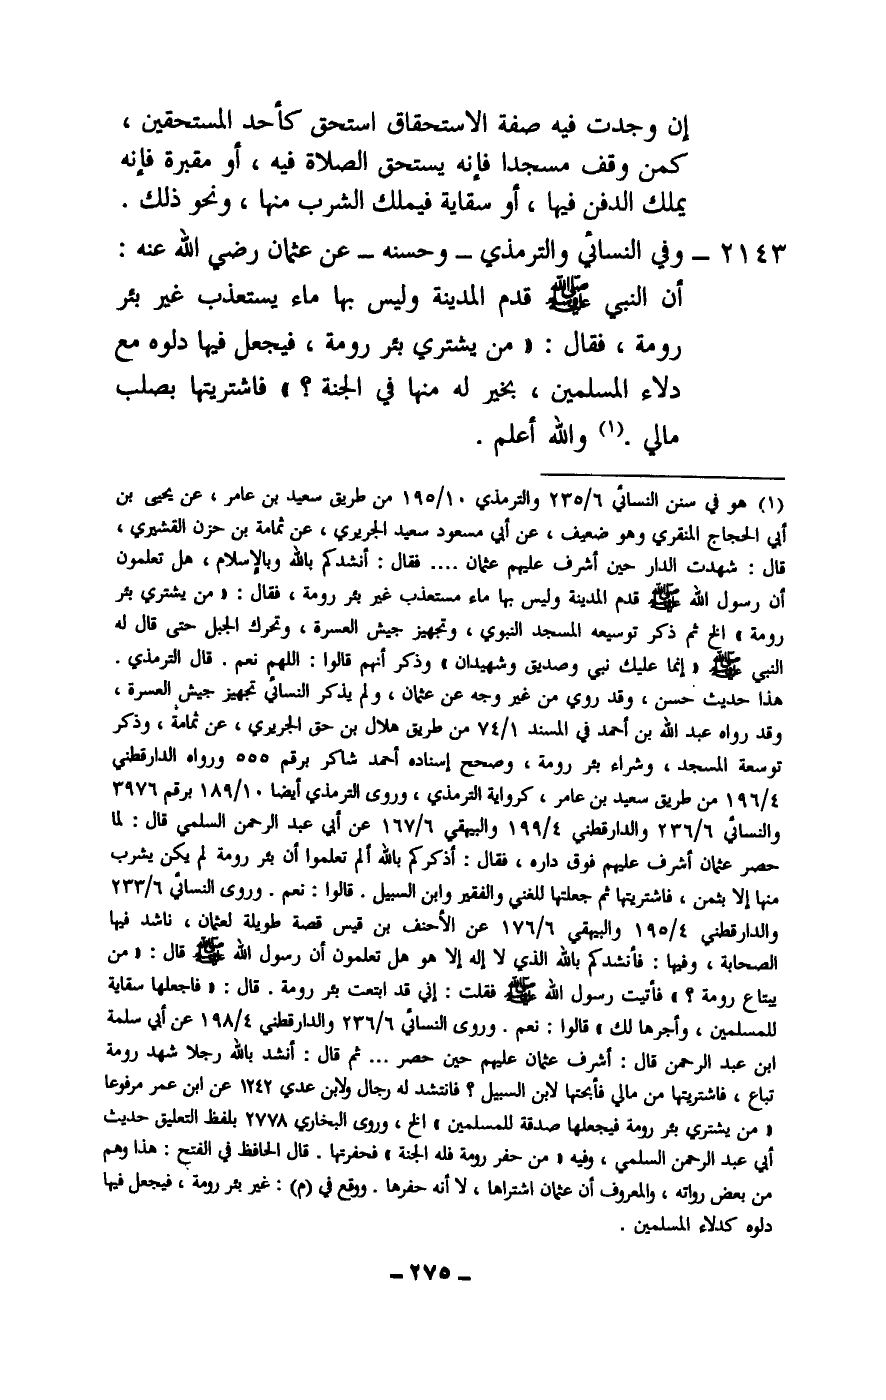 إن وجدت فيه صفة الاستحقاق استحق كأحد المستحقين ،
كمن وقف مسجدا فإنه يستحق الصلاة فيه ، أو مقبرة فإنه
يملك الدفن فيها ، أو سقاية فيملك الشرب منها ، ونحو ذلك .
٢١٤٣ – وفي النسائي والترمذي – وحسنه – عن عثمان رضي الله عنه :
أن النبي ﷺ قدم المدينة وليس بها ماء يستعذب غير بئر
رومة ، فقال : « من يشتري بئر رومة ، فيجعل فيها دلوه مع
دلاء المسلمين ، بخير له منها في الجنة ؟ » فاشتريتها بصلب
مالي .(١) والله أعلم .
(١) هو في سنن النسائي ٢٣٥/٦ والترمذي ١٩٥/١٠ من طريق سعيد بن عامر ، عن يحيى بن
أبي الحجاج المنقري وهو ضعيف ، عن أبي مسعود سعيد الجريري ، عن ثمامة بن حزن القشيري ،
قال : شهدت الدار حين أشرف عليهم عثمان .... فقال : أنشدكم بالله وبالإسلام ، هل تعلمون
أن رسول الله ﷺ قدم المدينة وليس بها ماء مستعذب غير بئر رومة ، فقال : « من يشتري بئر
رومة » الخ ثم ذكر توسيعه المسجد النبوي ، وتجهيز جيش العسرة ، وتحرك الجبل حتى قال له
النبي ﷺ « إنما عليك نبي وصديق وشهيدان » وذكر أنهم قالوا : اللهم نعم . قال الترمذي .
هذا حديث حسن ، وقد روي من غير وجه عن عثمان ، ولم يذكر النسائي تجهيز جيش العسرة ،
وقد رواه عبد الله بن أحمد في المسند ٧٤/١ من طريق هلال بن حق الجريري ، عن ثمامة ، وذكر
توسعة المسجد ، وشراء بئر رومة ، وصحح إسناده أحمد شاكر برقم ٥٥٥ ورواه الدارقطني
١٩٦/٤ من طريق سعيد بن عامر ، كرواية الترمذي ، وروى الترمذي أيضا ١٨٩/١٠ برقم ٣٩٧٦
والنسائي ٢٣٦/٦ والدارقطني ١٩٩/٤ والبيهقي ١٦٧/٦ عن أبي عبد الرحمن السلمي قال : لما
حصر عثمان أشرف عليهم فوق داره ، فقال : أذكركم بالله ألم تعلموا أن بئر رومة لم يكن يشرب
منها إلا بثمن ، فاشتريتها ثم جعلتها للغني والفقير وابن السبيل . قالوا : نعم . وروى النسائي ٢٣٣/٦
والدارقطني ١٩٥/٤ والبيهقي ١٧٦/٦ عن الأحنف بن قيس قصة طويلة لعثمان ، ناشد فيها
الصحابة ، وفيها : فأنشدكم بالله الذي لا إله إلا هو هل تعلمون أن رسول الله ﷺ قال : « من
يبتاع رومة ؟ » فأتيت رسول الله ﷺ فقلت : إني قد ابتعت بئر رومة . قال : « فاجعلها سقاية
للمسلمين ، وأجرها لك » قالوا : نعم . وروى النسائي ٢٣٦/٦ والدارقطني ١٩٨/٤ عن أبي سلمة
ابن عبد الرحمن قال : أشرف عثمان عليهم حين حصر ... ثم قال : أنشد بالله رجلا شهد رومة
تباع ، فاشتريتها من مالي فأبحتها لابن السبيل ؟ فانتشد له رجال ولابن عدي ١٢٤٢ عن ابن عمر مرفوعا
« من يشتري بئر رومة فيجعلها صدقة للمسلمين » الخ ، وروى البخاري ٢٧٧٨ بلفظ التعليق حديث
أبي عبد الرحمن السلمي ، وفيه « من حفر رومة فله الجنة » فحفرتها . قال الحافظ في الفتح : هذا وهم
من بعض رواته ، والمعروف أن عثمان اشتراها ، لا أنه حفرها . ووقع في (م) : غير بئر رومة ، فيجعل فيها
دلوه كدلاء المسلمين .
– ٢٧٥ –